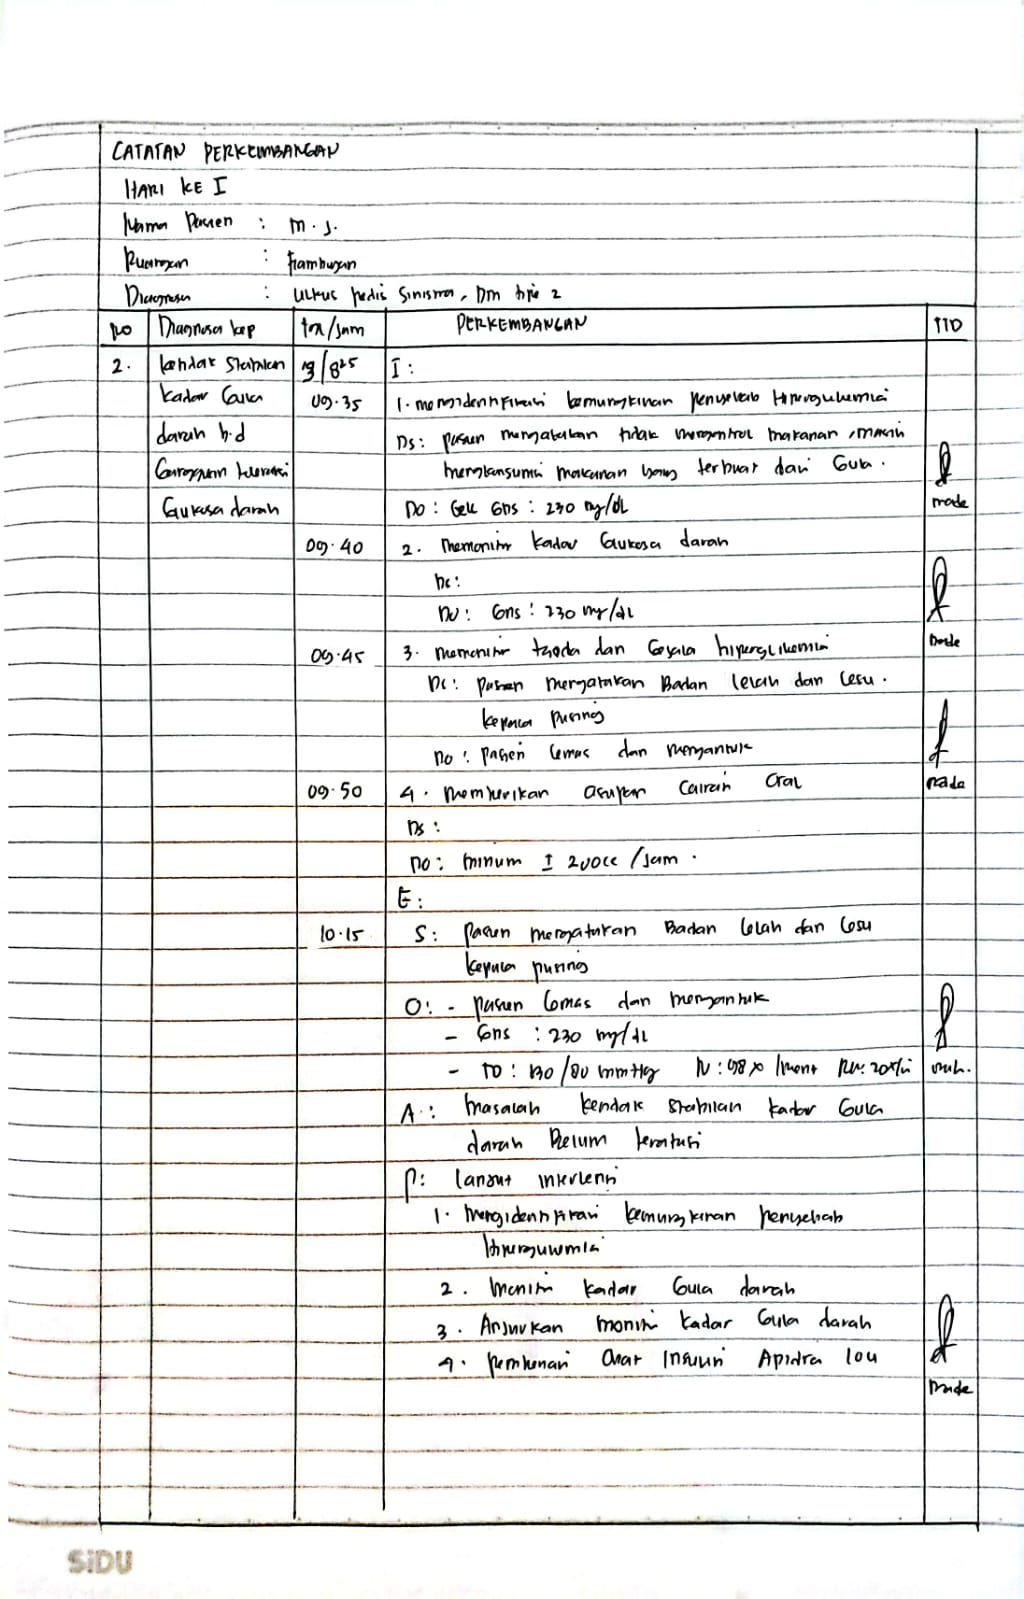 CATATAN PERKEMBANGAN
HARI KE I
Nama Pasien : M.J.
Ruangan : Frambusan
Diagnosa : Ulkus pedis Sinistra, DM tipe 2
NO Diagnosa kep TGL/Jam PERKEMBANGAN TTD
2. ketidak stabilan 13/8 25 I :
kadar Gula 09.35 1. mengidentifikasi kemungkinan penyebab Hiperglikemia
darah b.d Ds: pasien mengatakan tidak mengontrol makanan, masih
Gangguan toleransi mengkonsumsi makanan yang terbuat dari Gula.
Glukosa darah Do : Cek GDS : 230 mg/dL made
09.40 2. Memonitor kadar Glukosa darah
Ds :
Do : GDS : 230 mg/dL
09.45 3. memonitor tanda dan Gejala hiperglikemia made
Ds : pasien mengatakan Badan lelah dan lesu.
kepala pusing
Do : pasien lemas dan mengantuk
09.50 4. Memberikan asupan Cairan Oral made
Ds :
Do : minum ± 200cc /jam.
E :
10.15 S : pasien mengatakan Badan lelah dan lesu
kepala pusing
O : - pasien lemas dan mengantuk
- GDS : 230 mg/dL
- TD : 130/80 mmHg N : 98 x /menit RR: 20x/
A : Masalah kendak stabilan kadar Gula
darah Belum teratasi
P : lanjut intervensi
1. Mengidentifikasi kemungkinan penyebab
Hiperglikemia
2. Monitor kadar Gula darah
3. Anjurkan monitor kadar Gula darah
4. pemberian Obat Insulin Apidra 10u
made
SiDU